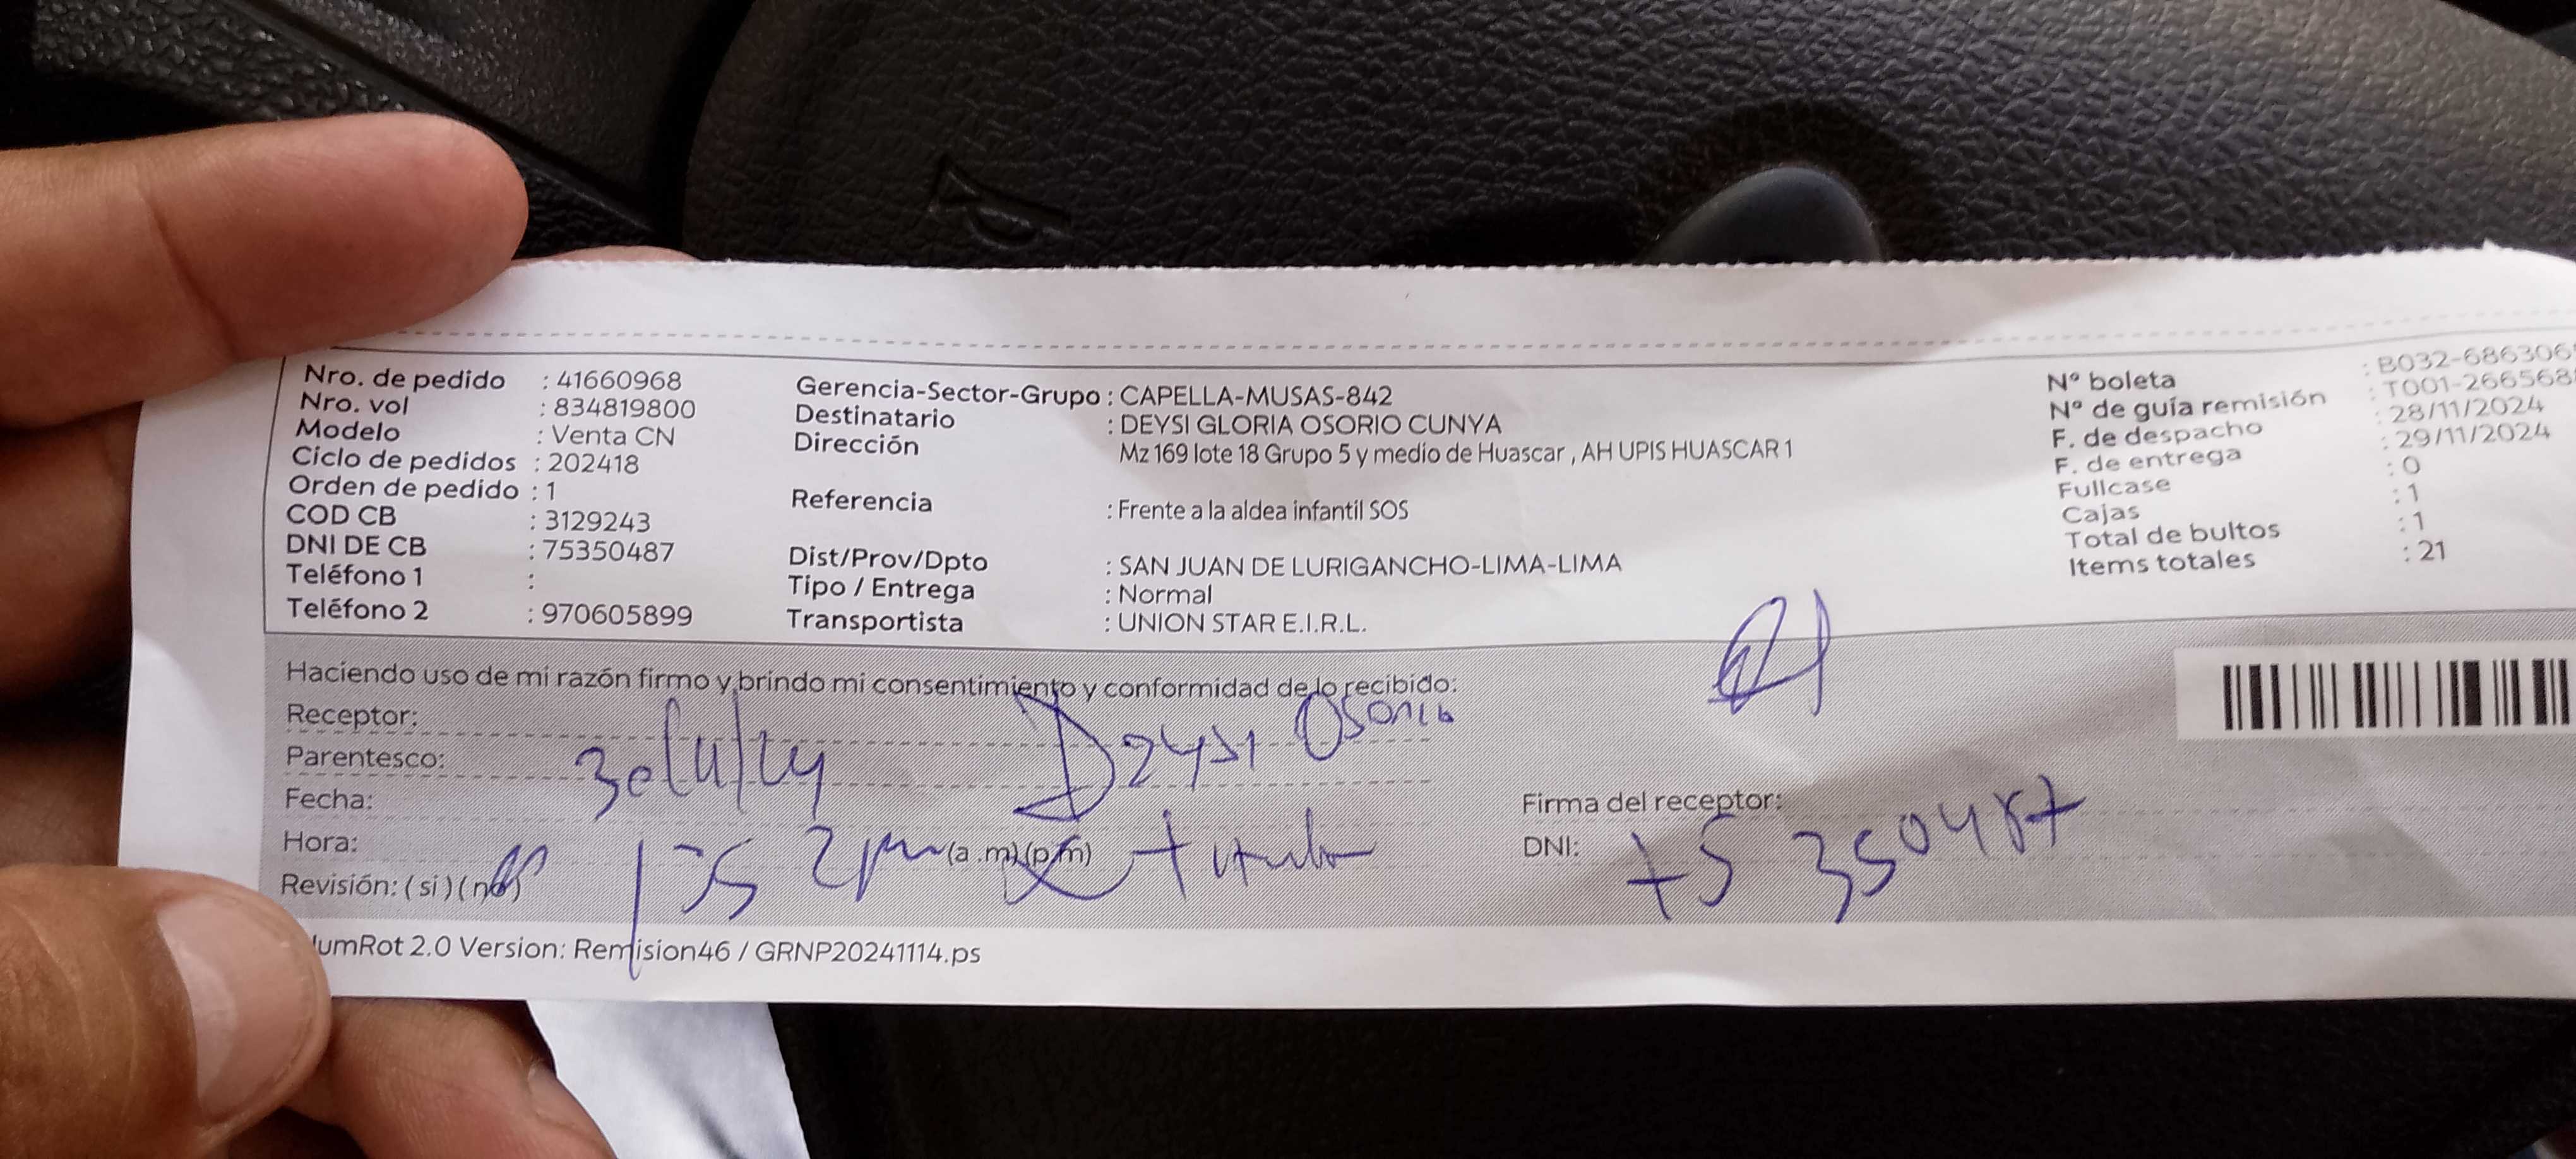 Nro. de pedido : 41660968
Nro. vol : 834819800
Modelo : Venta CN
Ciclo de pedidos : 202418
Orden de pedido : 1
COD CB : 3129243
DNI DE CB : 75350487
Teléfono 1 :
Teléfono 2 : 970605899
Gerencia-Sector-Grupo : CAPELLA-MUSAS-842
Destinatario : DEYSI GLORIA OSORIO CUNYA
Dirección Mz 169 lote 18 Grupo 5 y medio de Huascar , AH UPIS HUASCAR 1
Referencia : Frente a la aldea infantil SOS
Dist/Prov/Dpto : SAN JUAN DE LURIGANCHO-LIMA-LIMA
Tipo / Entrega : Normal
Transportista : UNION STAR E.I.R.L.
Nº boleta : B032-686306
Nº de guía remisión : T001-266568
F. de despacho : 28/11/2024
F. de entrega : 29/11/2024
Fullcase : 0
Cajas : 1
Total de bultos : 1
Items totales : 21
Haciendo uso de mi razón firmo y brindo mi consentimiento y conformidad de lo recibido:
Receptor: Deysi Osorio
Parentesco:
Fecha: 30/11/24
Hora: 2pm (a.m) (p.m)
Revisión: ( si ) ( no )
Firma del receptor:
DNI: 75350487
umRot 2.0 Version: Remision46 / GRNP20241114.ps